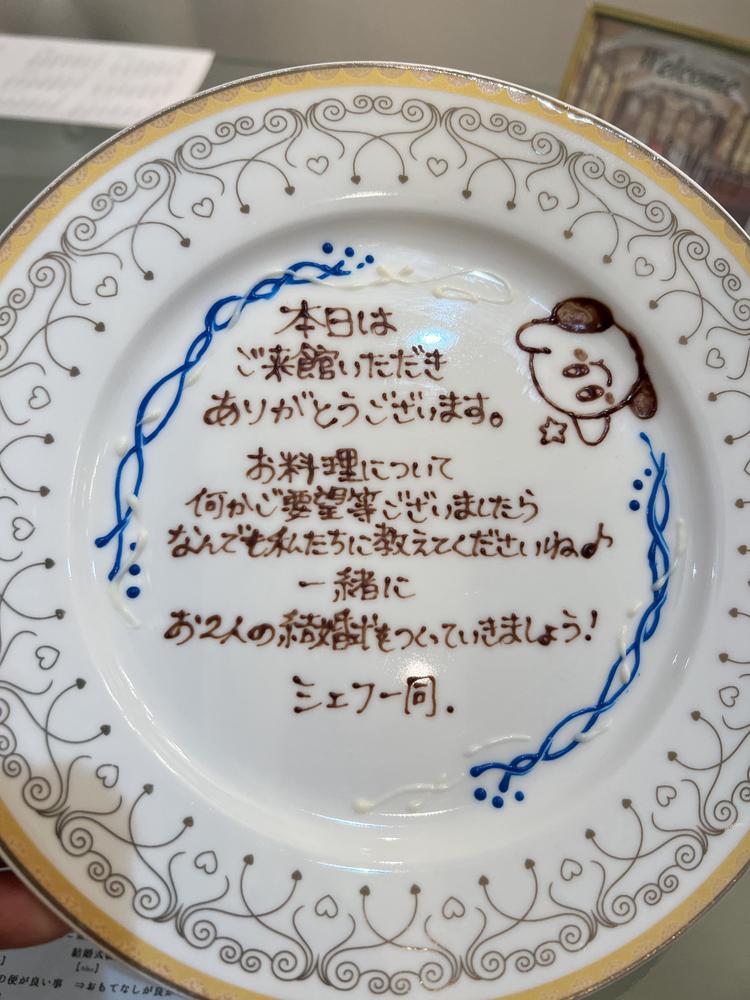 Welcome
本日は
ご来館いただき
ありがとうございます。
お料理について
何かご要望等ございましたら
なんでも私たちに教えてくださいね♪
一緒に
お2人の結婚式をつくっていきましょう!
シェフ一同.
結婚式
の便が良い事 ⇒おもてなしが良